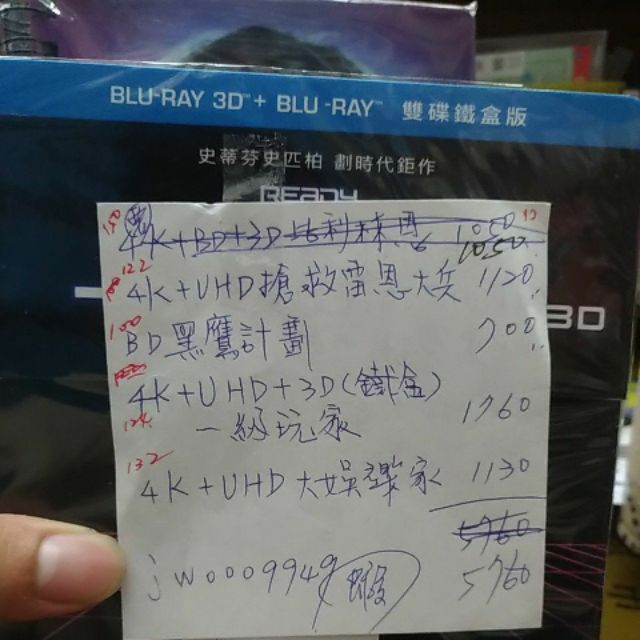 BLU-RAY 3D™ + BLU-RAY™ 雙碟鐵盒版
史蒂芬史匹柏 劃時代鉅作
READY
4K+BD+3D 1050
122
4K+UHD搶救雷恩大兵 1120
100
BD黑鷹計劃 700
4K+UHD+3D(鐵盒)
一級玩家 1760
124
132
4K+UHD 大娛樂家 1130
5760
jwo009949 蝦 5760
3D